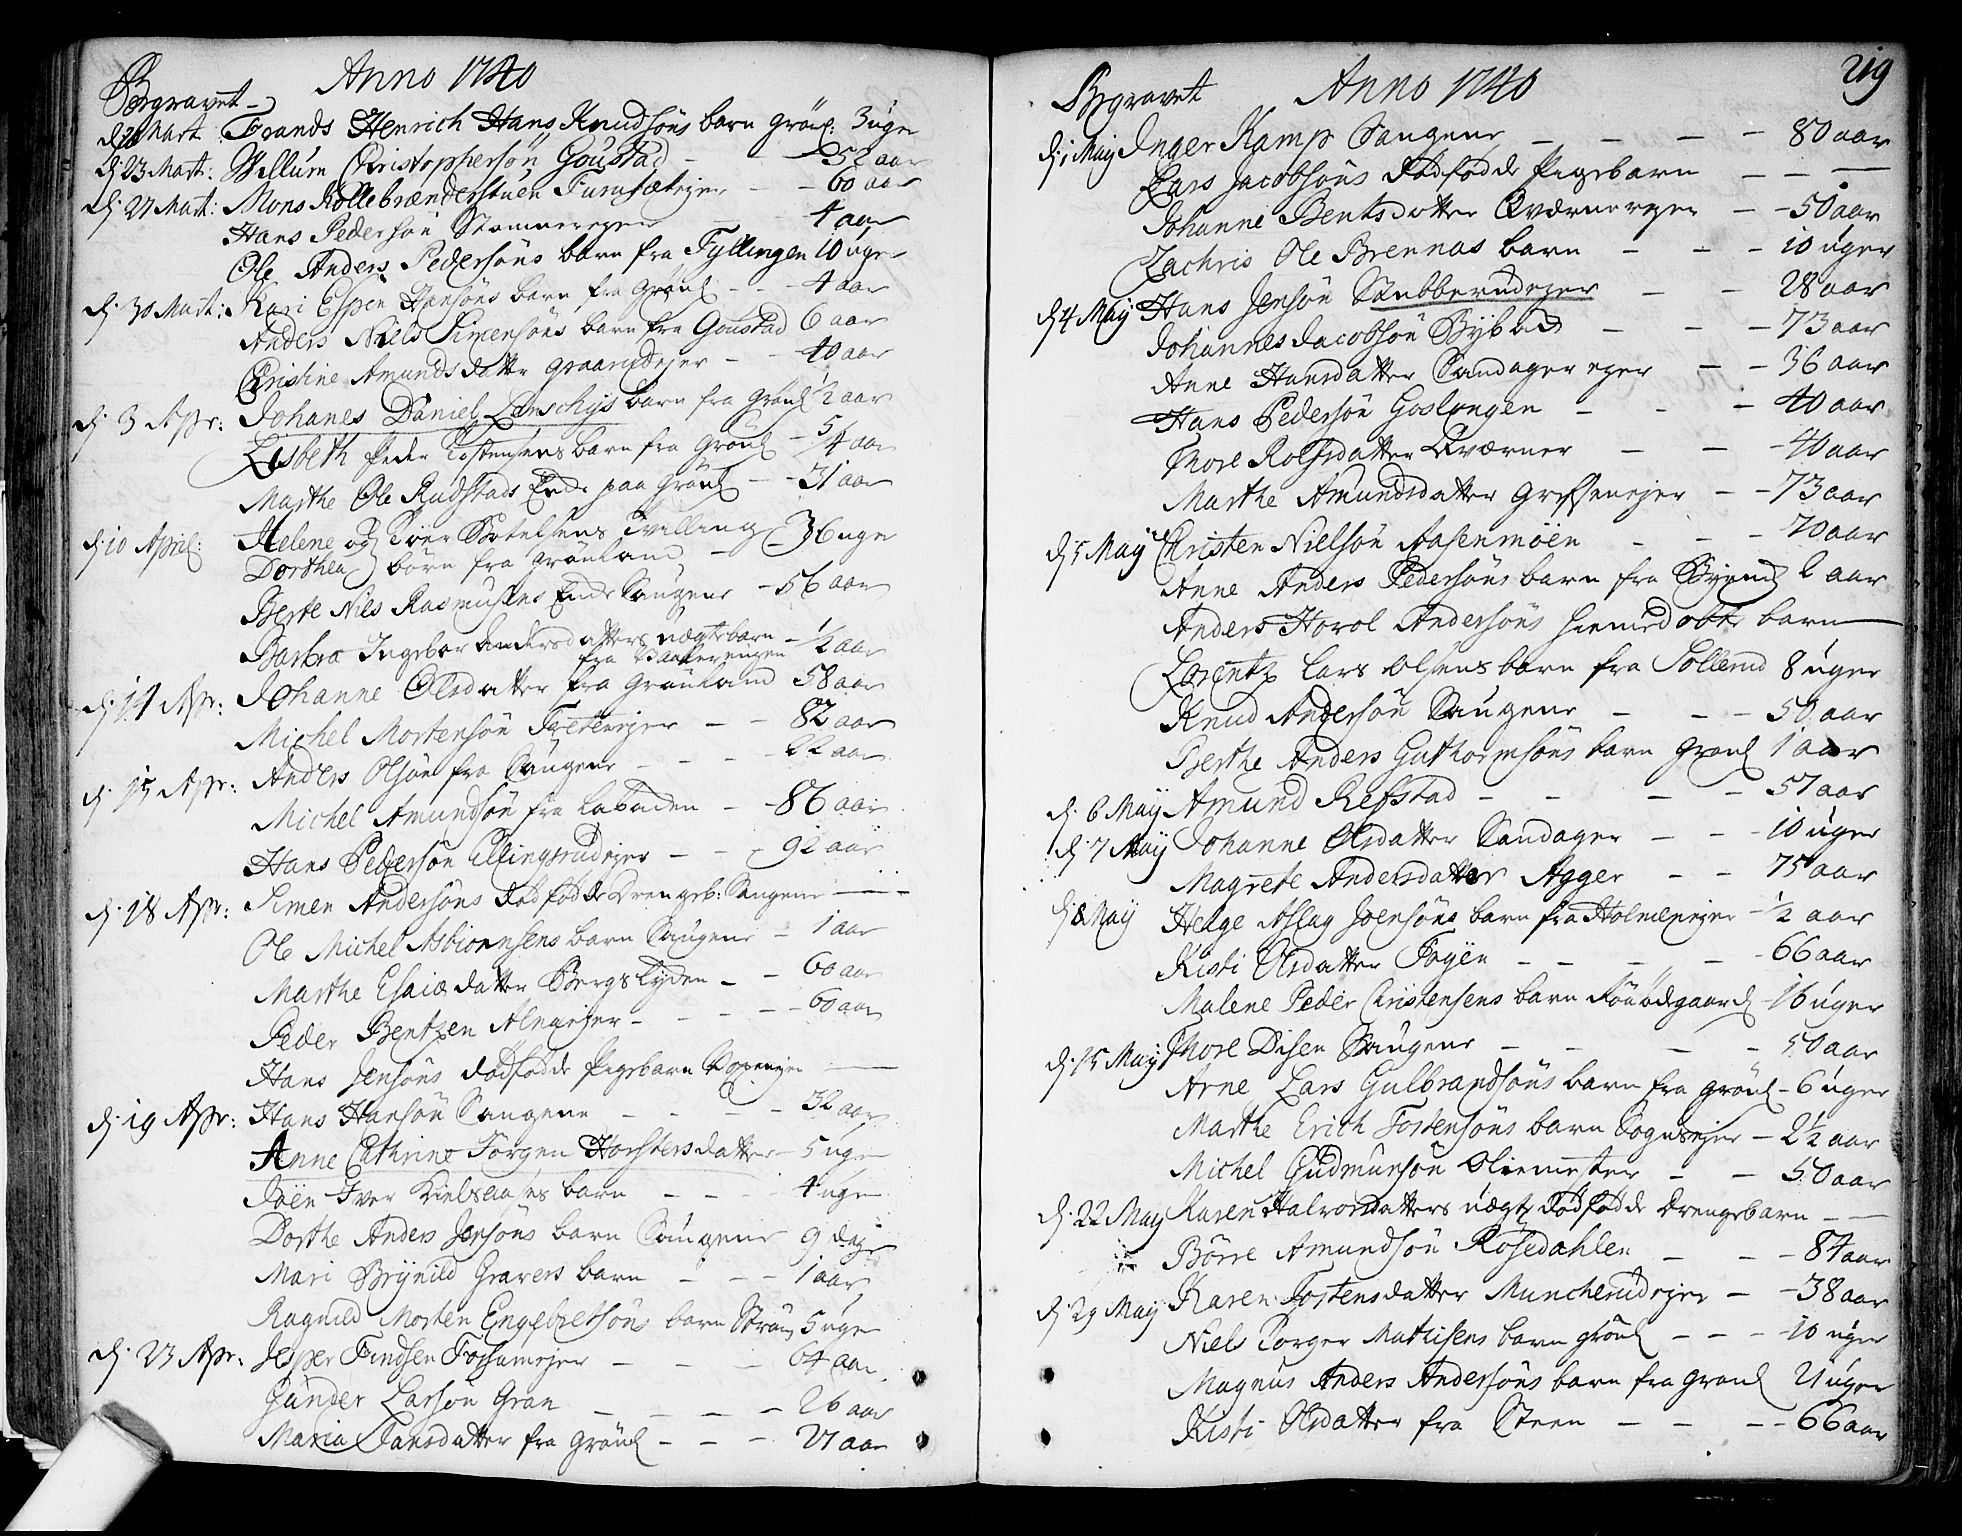 Begravet Anno 1740
d. 20 Mart. Frands Henrich Hans Knudsöns barn Grönl: 3 uger
d. 23 Mart: Willum Christophersön Goustad - - 52 aar
d. 27 Mart: Mons Kollebrænderstuen Furusætejer - - 60 aar
Hans Pedersön 4 aar
Ole Anders Pedersöns barn fra Fyllingen 10 uger
d. 30 Mart: Kari Espen Hansöns barn fra Grönl - - 4 aar
Anders Niels Simensöns barn fra Goustad 6 aar
Christine Amunds datter - - 40 aar
d. 3 Apr: Johanes Daniel barn fra Grönl ½ aar
Lisbeth Peder Tostensens barn fra Grönl - 5/4 aar
Marthe Ole Rudstads Enke paa Grönl - - 31 aar
d. 10 April: Helene og Tvilling 36 uger
Dorthea börn fra Grönland
Berte Niels Rasmusens Enke Saugene - 56 aar
Barbra Ingebor Andersdatters uægte barn - ½ aar
fra
d. 14 Apr: Johanne Olsdatter fra Grönland 58 aar
Michel Mortensön - - 82 aar
d. 15 Apr: Anders Olsön fra Saugene - - - 22 aar
Michel Amundsön fra Labaden - - 86 aar
Hans Pedersön Ellingsrudejer - - - 92 aar
d. 18 Apr: Simen Andersöns dödfödde Drengeb: Saugene
Ole Michel Asbiornsens barn Saugene - 1 aar
Marthe Esaiæ datter Bergslyden - - 60 aar
Peder Bentzen Alnæejer - - - - 60 aar
Hans Jensöns dödfödde Pigebarn
d. 19 Apr: Hans Hansön Saugene - - - - 32 aar
Anne Cathrine Jörgen Horsters datter - 5 uger
Joen Iver Kielsaases barn - - - 4 uger
Dorthe Anders Jensöns barn Saugene 9 dage
Mari Brynild Gravers barn - - - 1 aar
Ragnild Morten Engebretsöns barn 5 uger
d. 23 Apr: Jesper Findsen Fossumejer - - - 64 aar
Gunder Larson Gran - - - - 26 aar
Maria Hansdatter fra Grönl - - - 27 aar
Begravet Anno 1740 219
d. 1 May Inger Kamp Saugene - - - - 80 aar
Lars Jacobsöns Dödfödde Pigebarn - - -
Johanne Bentsdatter Qværnerejer - - 50 aar
Zachris Ole Brennas barn - - - 10 uger
d. 4 May Hans Jensön Stubberudejer - - 28 aar
Johannes Jacobsön - - - 73 aar
Anne Hansdatter Sandagerejer - - 36 aar
Hans Pedersön - - - 40 aar
Thore Rolfsdatter Qværner - - - 40 aar
Marthe Amundsdatter Grefsenejer - - 73 aar
d. 5 May Christen Nielsön Aasenmöen - - - 70 aar
Anne Anders Pedersöns barn fra 2 aar
Anders Horol Andersöns hiemedöbte barn
Lorentz Lars Olsens barn fra Sollerud 8 uger
Knud Andersön Saugene - - - 50 aar
Berthe Anders Guthormsöns barn Grönl 1 aar
d. 6 May Amund Refstad - - - - 57 aar
d. 7 May Johanne Olsdatter Sandager - - - 10 uger
Magrete Andersdatter Agger - - 75 aar
d. 8 May Helge Aslag Joensöns barn fra Holmenejer - ½ aar
Kisti Olsdatter Töyen - - - - 66 aar
Malene Peder Christensens barn 16 uger
d. 15 May Thore Disen Saugene - - - - 50 aar
Arne Lars Gulbrandsöns barn fra Grönl - 6 uger
Marthe Erich Tostensöns barn Sognsejer - 2½ aar
Michel Gudmunsön Oliemester - - 50 aar
d. 22 May Karen Halvorsdatters uægte Dödfödde Drengebarn - -
Börre Amundsön Rosedahlen - - - 84 aar
d. 29 May Karen Tostensdatter Muncherudejer - - 38 aar
Niels Torger Mathisens barn Grönl - - - 10 uger
Magnus Anders Andersöns barn fra Grönl 2 uger
Kisti Olsdatter fra Steen - - - - 66 aar